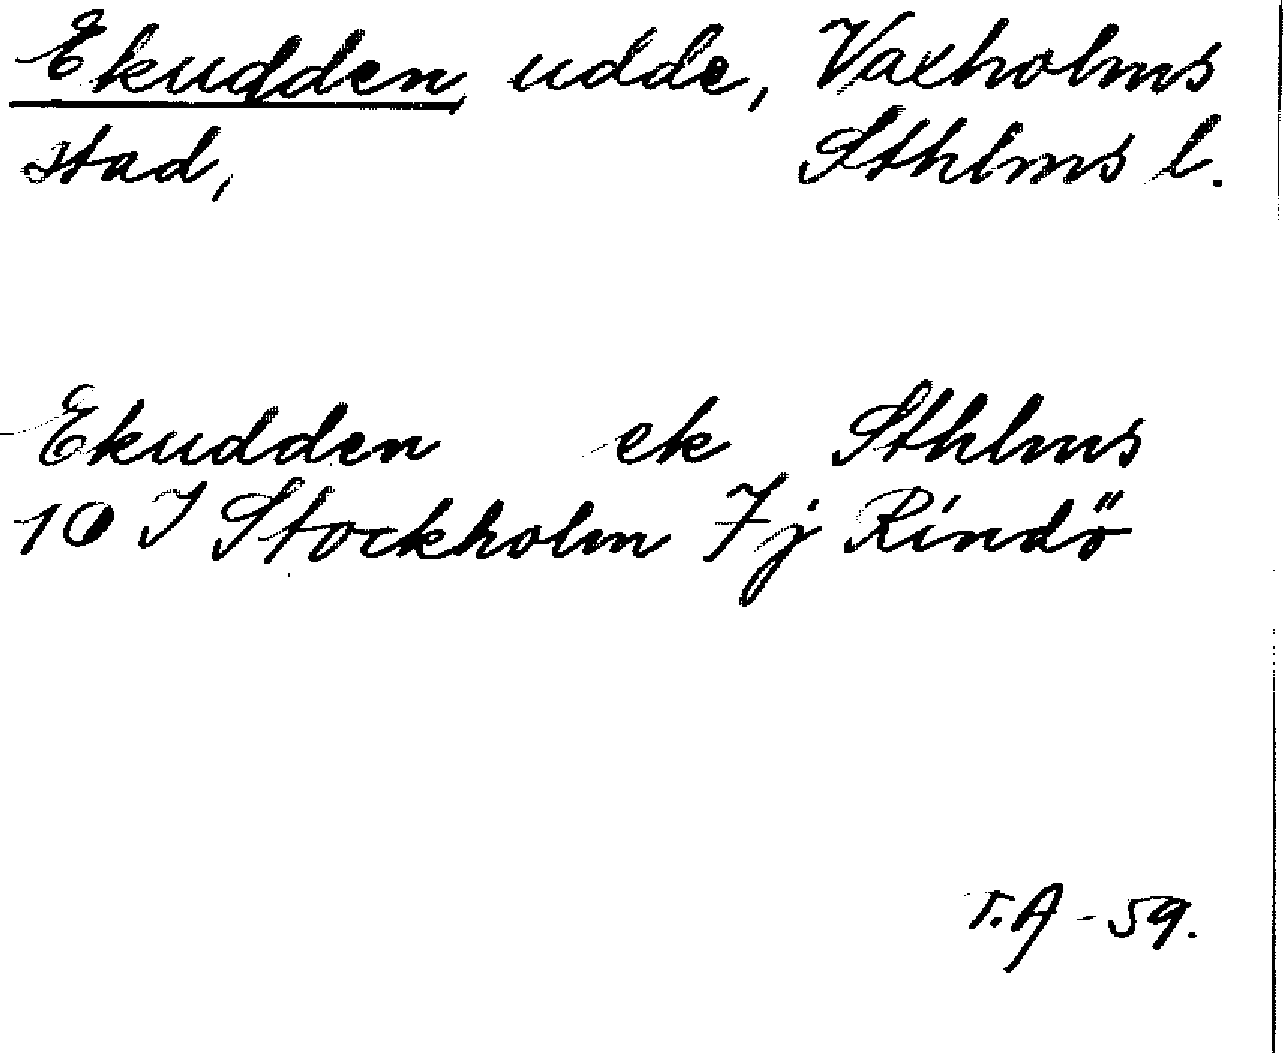 Ekudden, udde, Vaxholms
stad, Sthlms l.
Ekudden ek Sthlms
10 I Stockholm 7j Rindö
T.A -59.